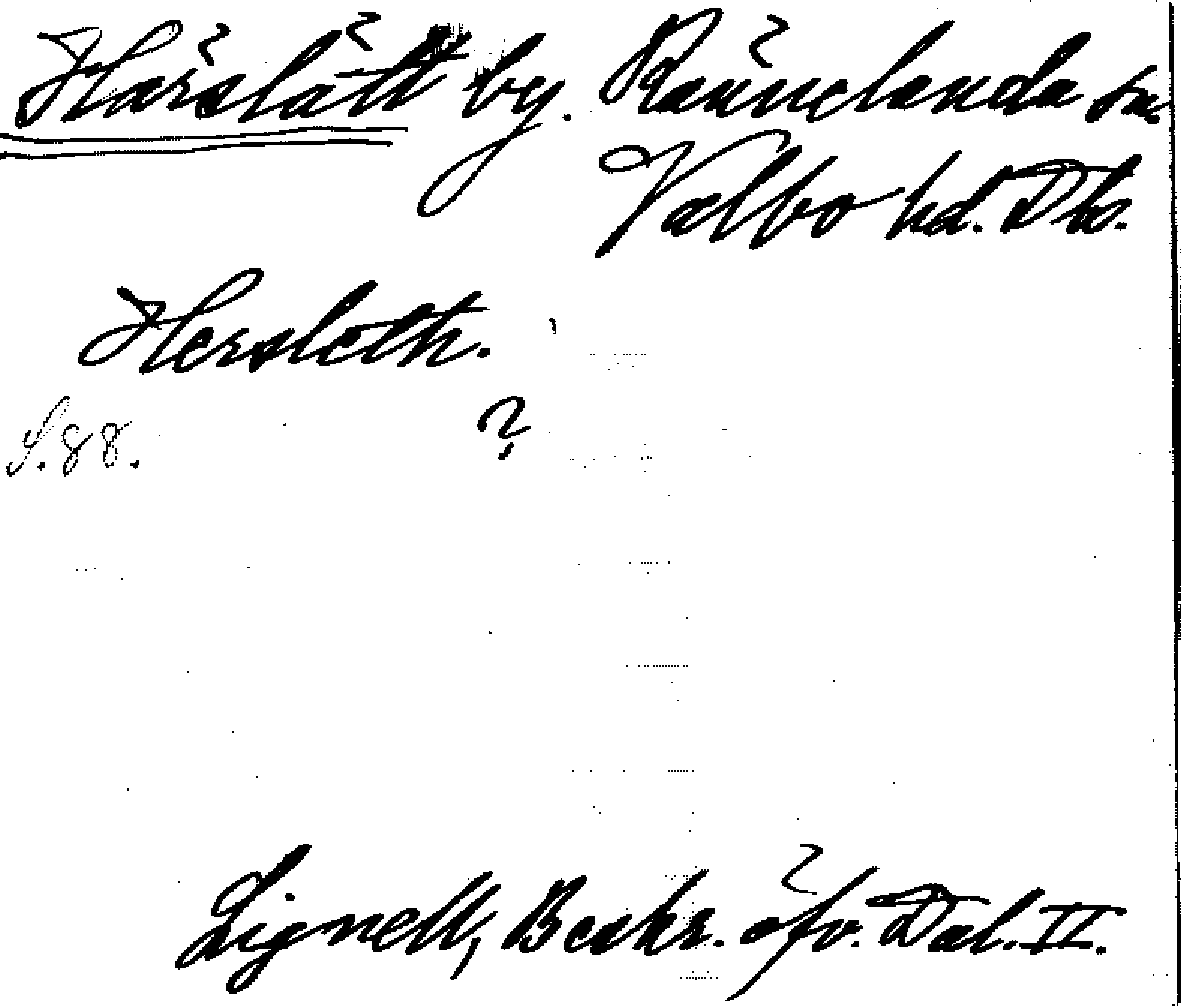 Härslätt by. Rännelanda sn.
Valbo hd. Dls.
Hersleth.
S. 88. ?
Lignell, Beskr. öfv. Dal. II.